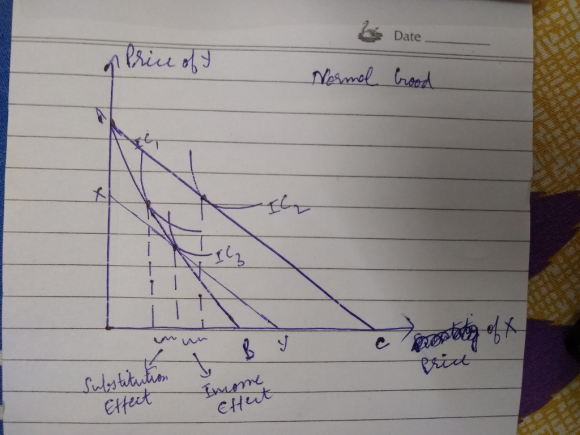 Date
Price of Y
Normal Good
A
IC1
X
IC2
IC3
B
Y
C
of X
Price
Substitution
Effect
Income
Effect